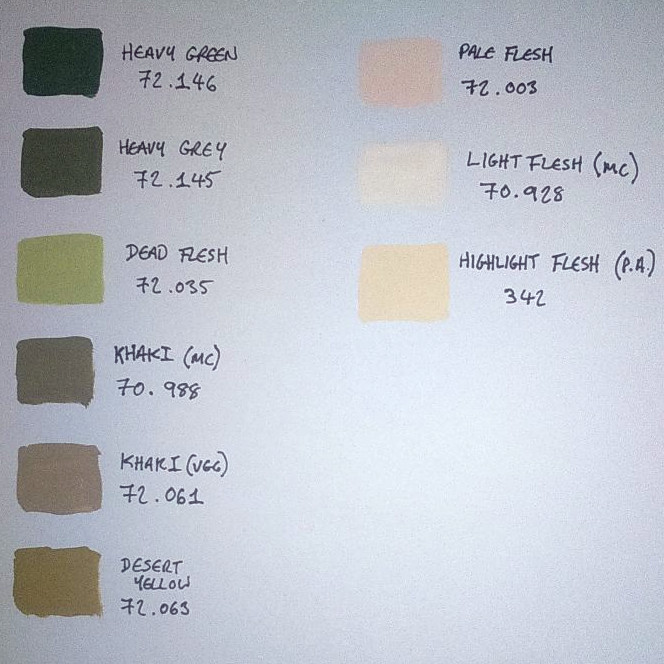 HEAVY GREEN
72.146
HEAVY GREY
72.145
DEAD FLESH
72.035
KHAKI (MC)
70.988
KHAKI (VGC)
72.061
DESERT
YELLOW
72.063
PALE FLESH
72.003
LIGHT FLESH (MC)
70.928
HIGHLIGHT FLESH (P.A.)
342